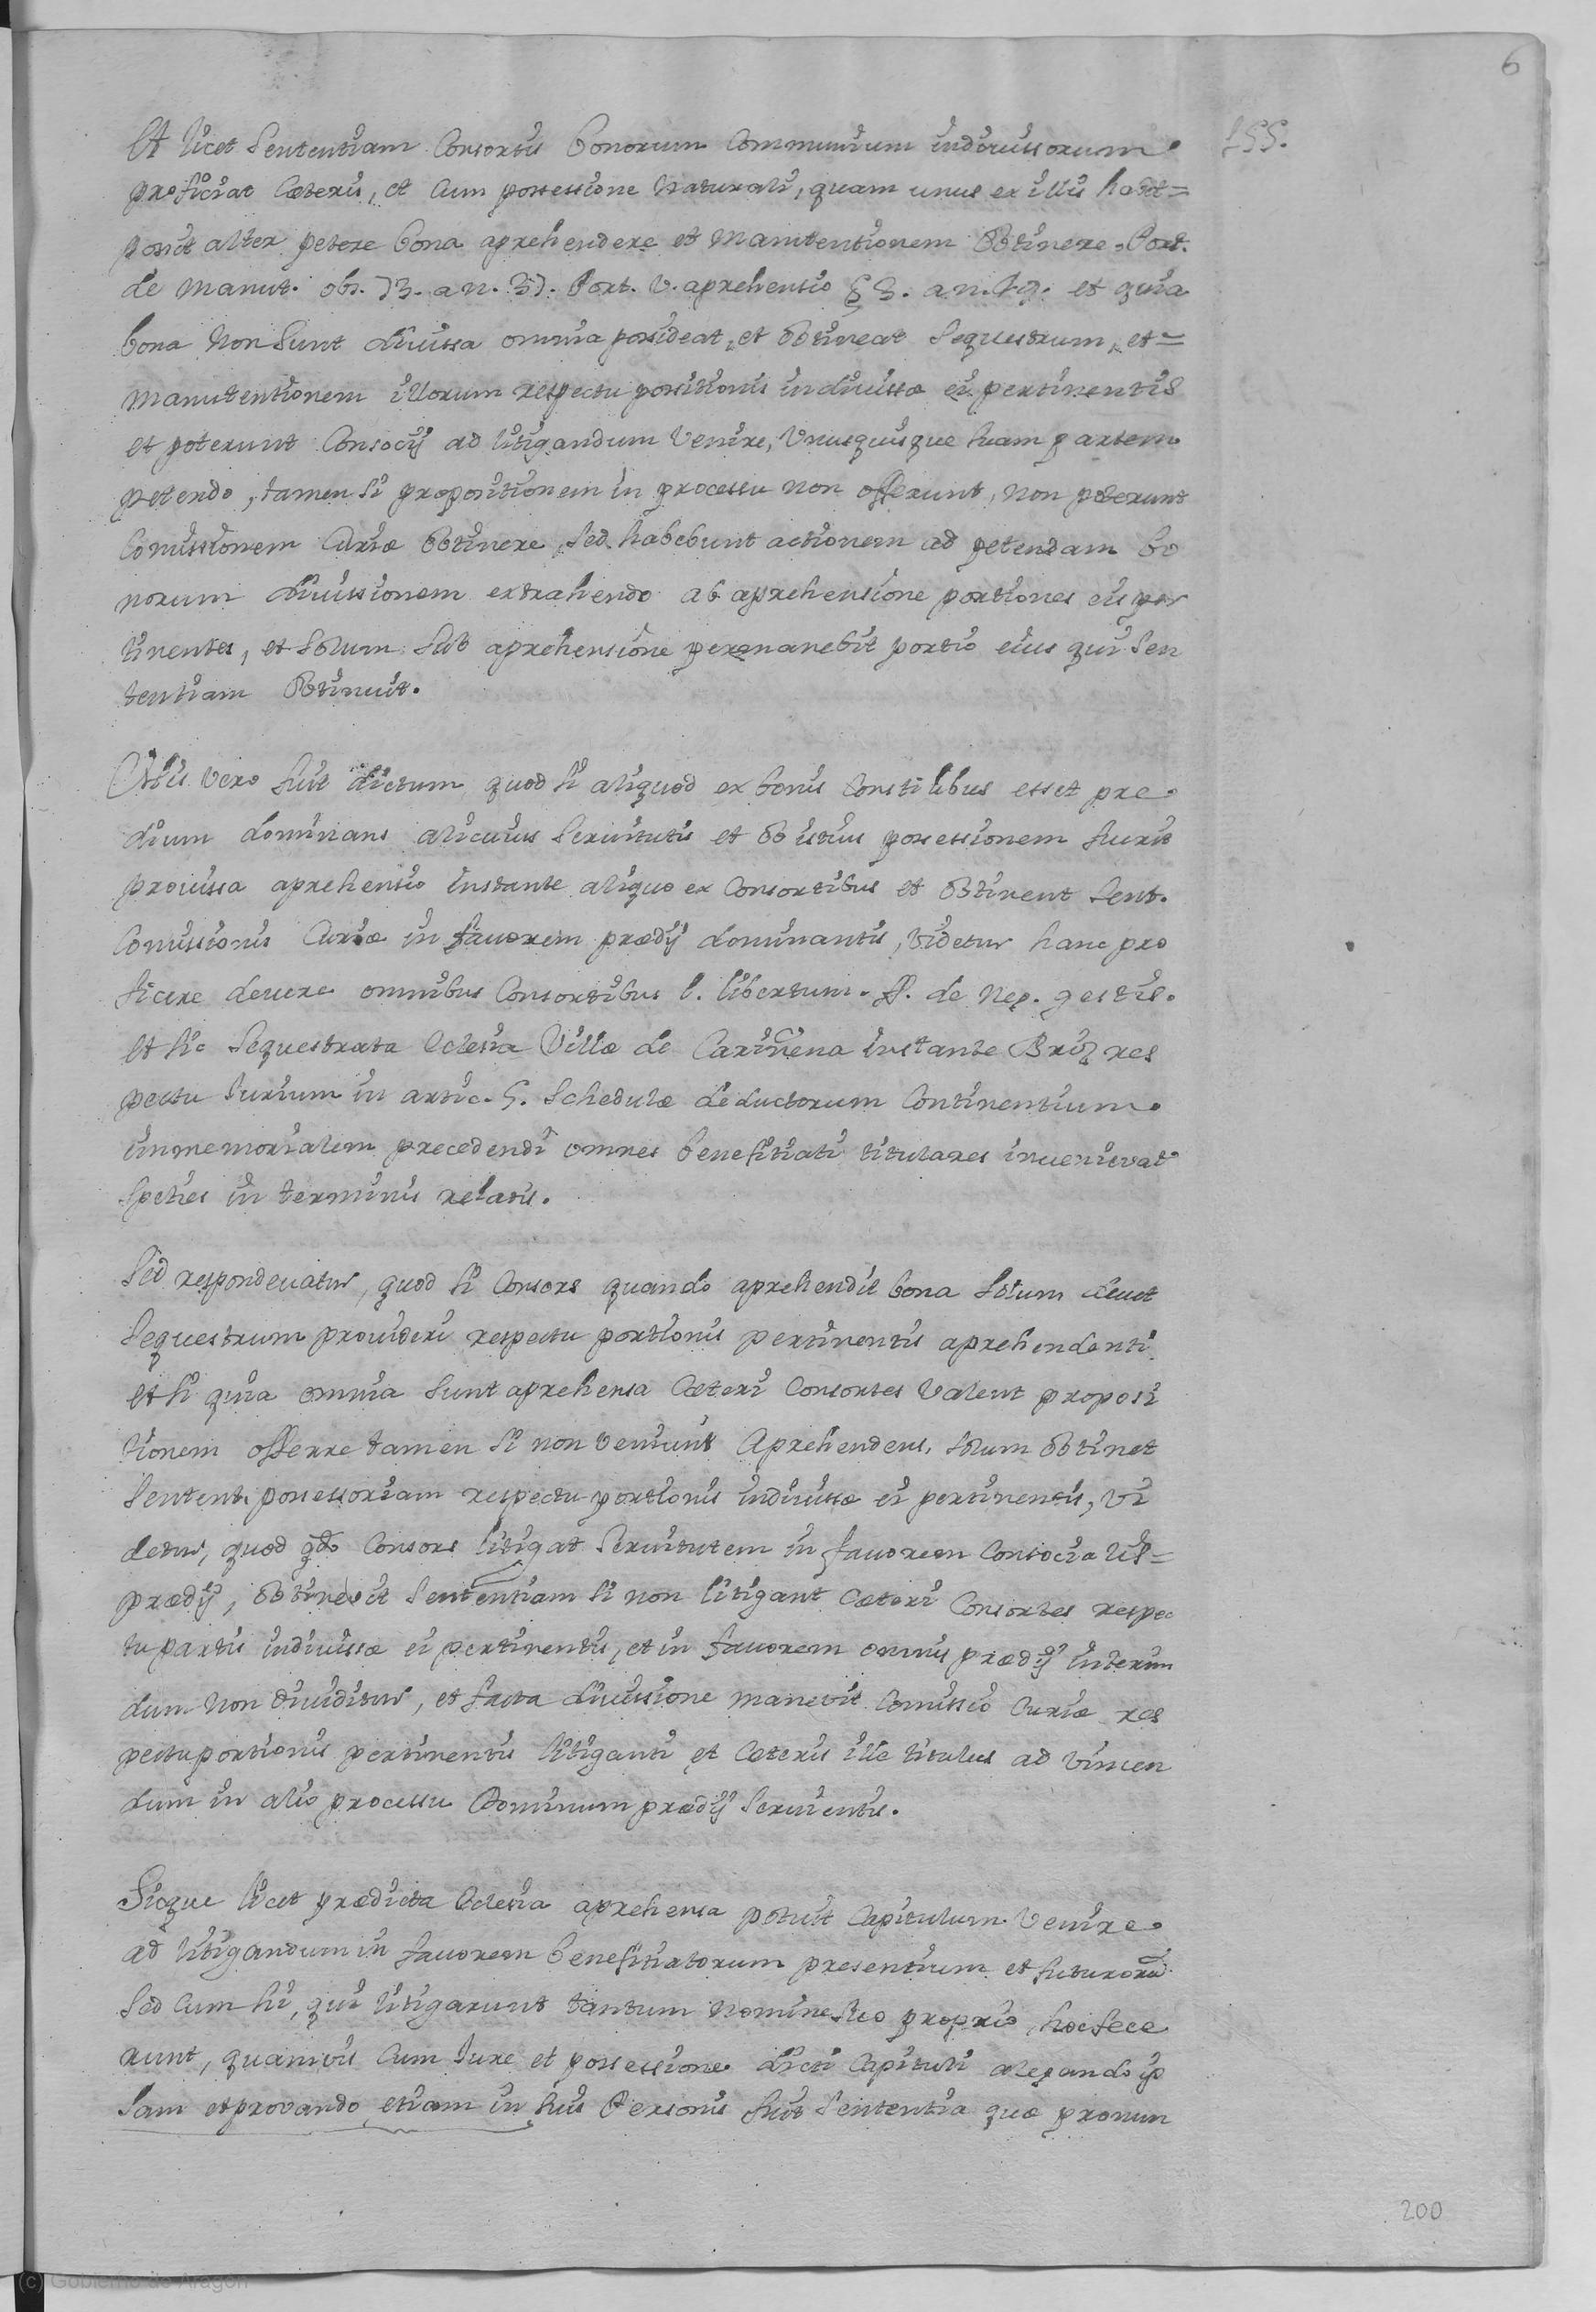 6
155.
Et licet Sententiam Consortis bonorum Communium indiuissorum
proficiat Cæteris, et Cum possessione naturali, quam unus ex illis habet=
possit alter petere bona aprehendere et manutentionem obtinere. Port.
de manut. obs. 73. a n. 37. Port. V. aprehensio § 3. a n. et quia
bona non sunt diuissa omnia posideat, et obtineat Sequestrum, et=
manutentionem illorum respectu portionis indiuissæ ei pertinentis
et poterunt Consocij ad litigandum Venire, Vnusquisque suam partem
petendo, tamen si propositionem in processu non offerunt, non poterunt
Comissionem Curiæ obtinere, sed habebunt actionem ad petendam bo
norum diuissionem extrahendo ab aprehensione portiones eis per
tinentes, et solum sub aprehensione permanebit portio eius qui sen
tentiam obtinuit.
Vltis vero fuit dictum quod si aliquod ex bonis Consti libus esset pre
dium dominans alicuius Seruitutis et ob istius possessionem fuerit
prouissa aprehensio instante aliquo ex Consortibus et obtinent sent.
Comissionis Curiæ in fauorem prædij dominantis, videtur hanc pro
ficere deuere omnibus Consortibus l. libertum. ff. de Neg. gestis.
et sic Sequestrata Eclesia Villæ de Cariñena instante Briz res
pectu Iurium in artic. 5. Schedulæ deductorum Continentium
inmemorialem precedendi omnes benefitiati titulares inuenievat
speties in terminis relatis.
Sed respondeuatur, quod si Consors quando aprehendit bona solum deuet
Sequestrum prouideri respectu portionis pertinentis aprehendenti
et si quia omnia sunt aprehensa Cæteri Consortes Valent proposi
tionem offerre tamen si non veniunt Aprehendens, solum obtinet
Sentent. possessoriam respectu portionis indiuissæ ei pertinentis, vi
detur, quod qdo Consors litigat Seruitutem in fauorem consocialis=
prædij, obtinevit Sententiam si non litigant Cæteri Consortes respec
tu partis indiuissæ ei pertinentis, et in fauorem omnis prædij interim
dum non diuiditur, et facta diuissione manevit Comissio Curiæ res
pectu portionis pertinentis litiganti et Cæteris ille titulus ad vincen
dum in alio processu Dominum prædij seruientis.
Sicque licet prædicta Eclesia aprehensa potuit Capitulum Venire
ad litigandum in fauorem benefitiatorum presentium et futurorũ
Sed Cum hi, qui litigarunt tantum nomine suo proprio hoc fece
runt, quamvis Cum Iure et possessione dicti Capituli alegando ip
sam et provando etiam in his Personis fuit Sententia quæ pronun
200
(c) Gobierno de Aragón